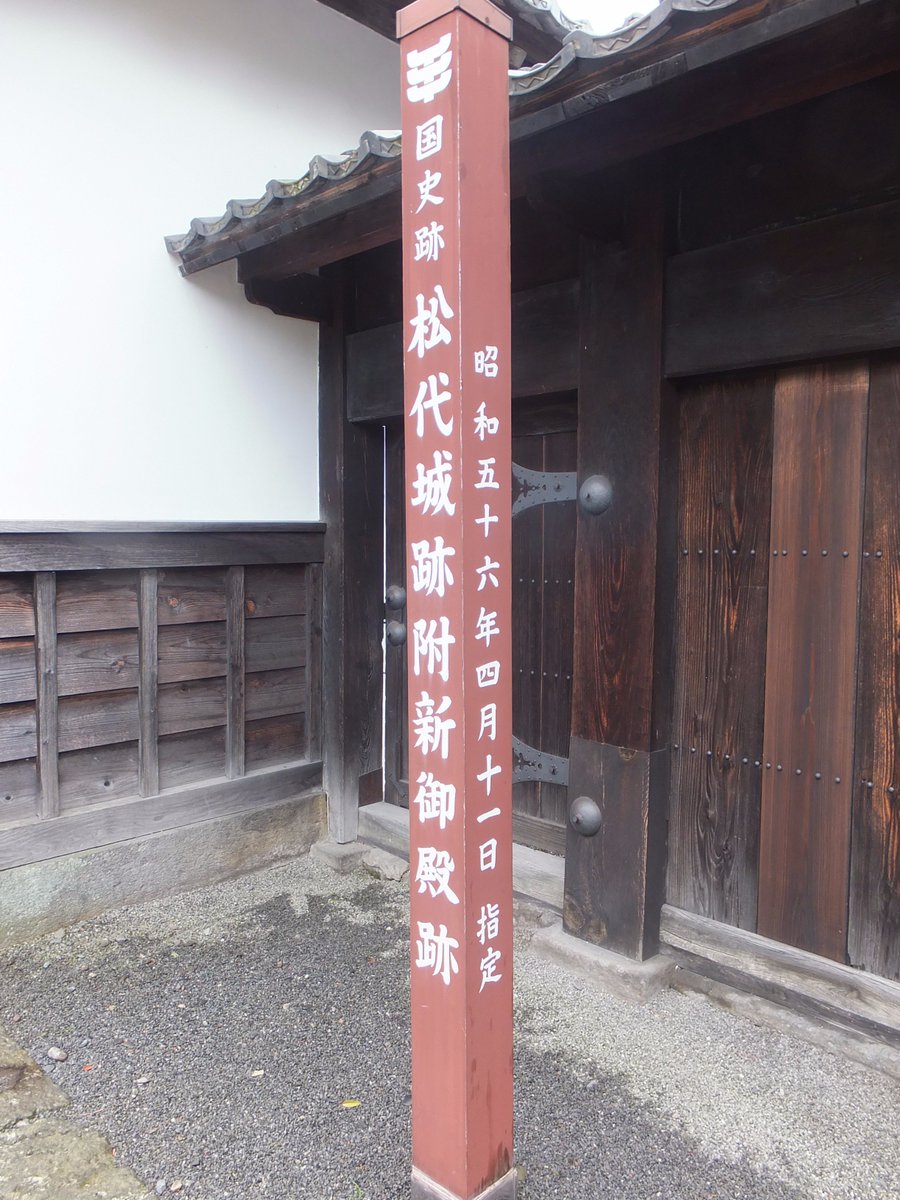 国史跡 松代城跡附新御殿跡
昭和五十六年四月十一日 指定